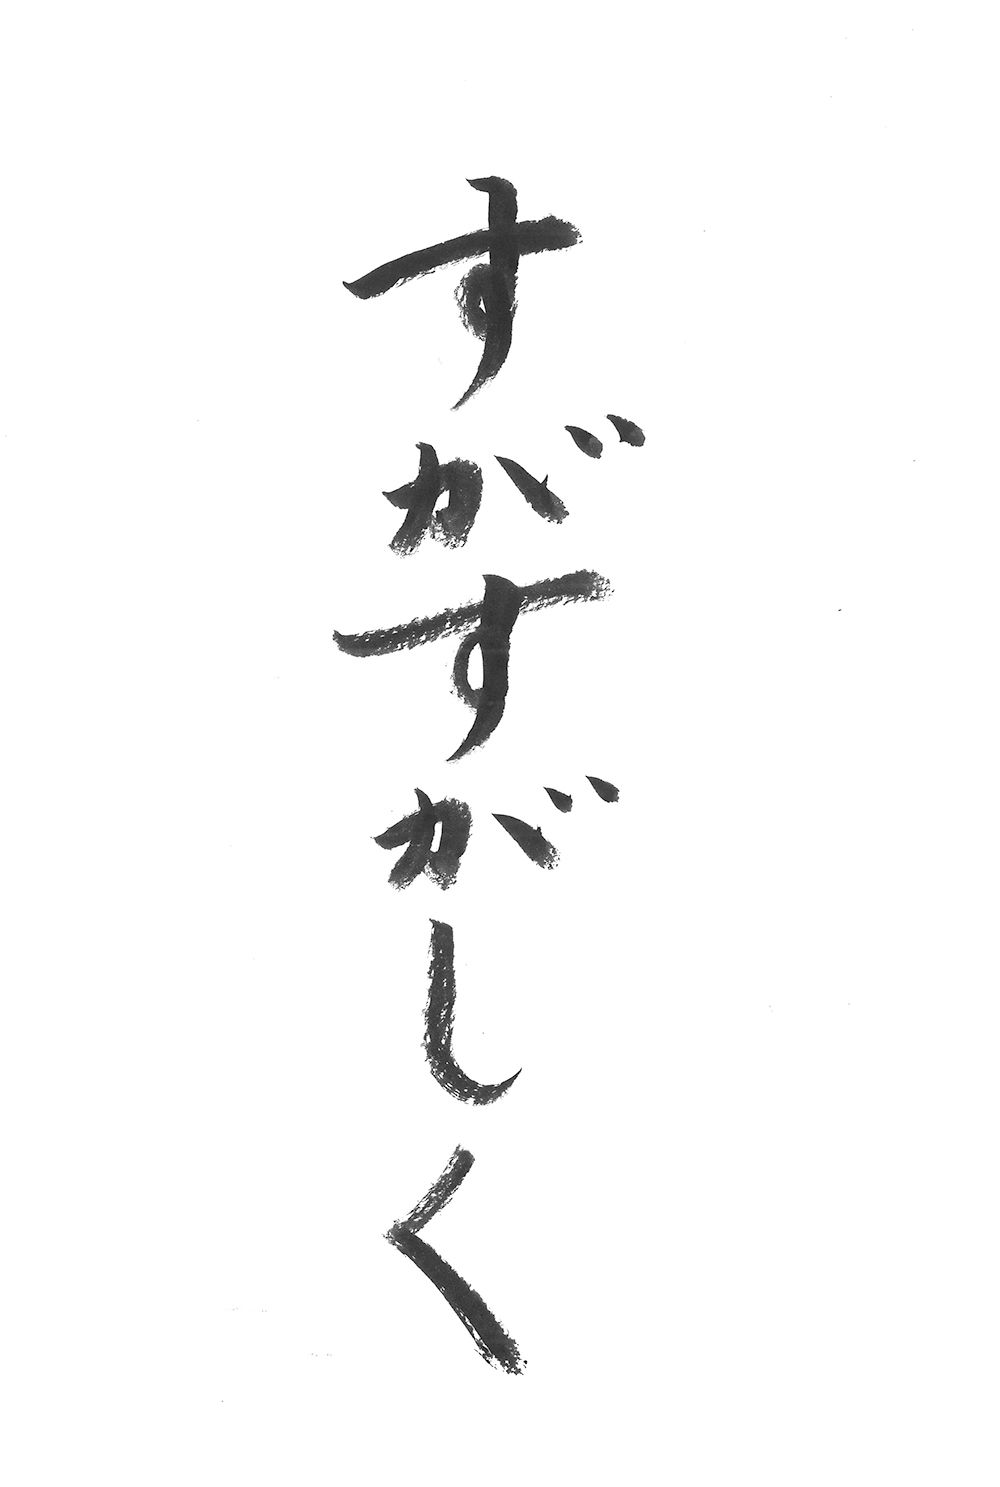 すがすがしく